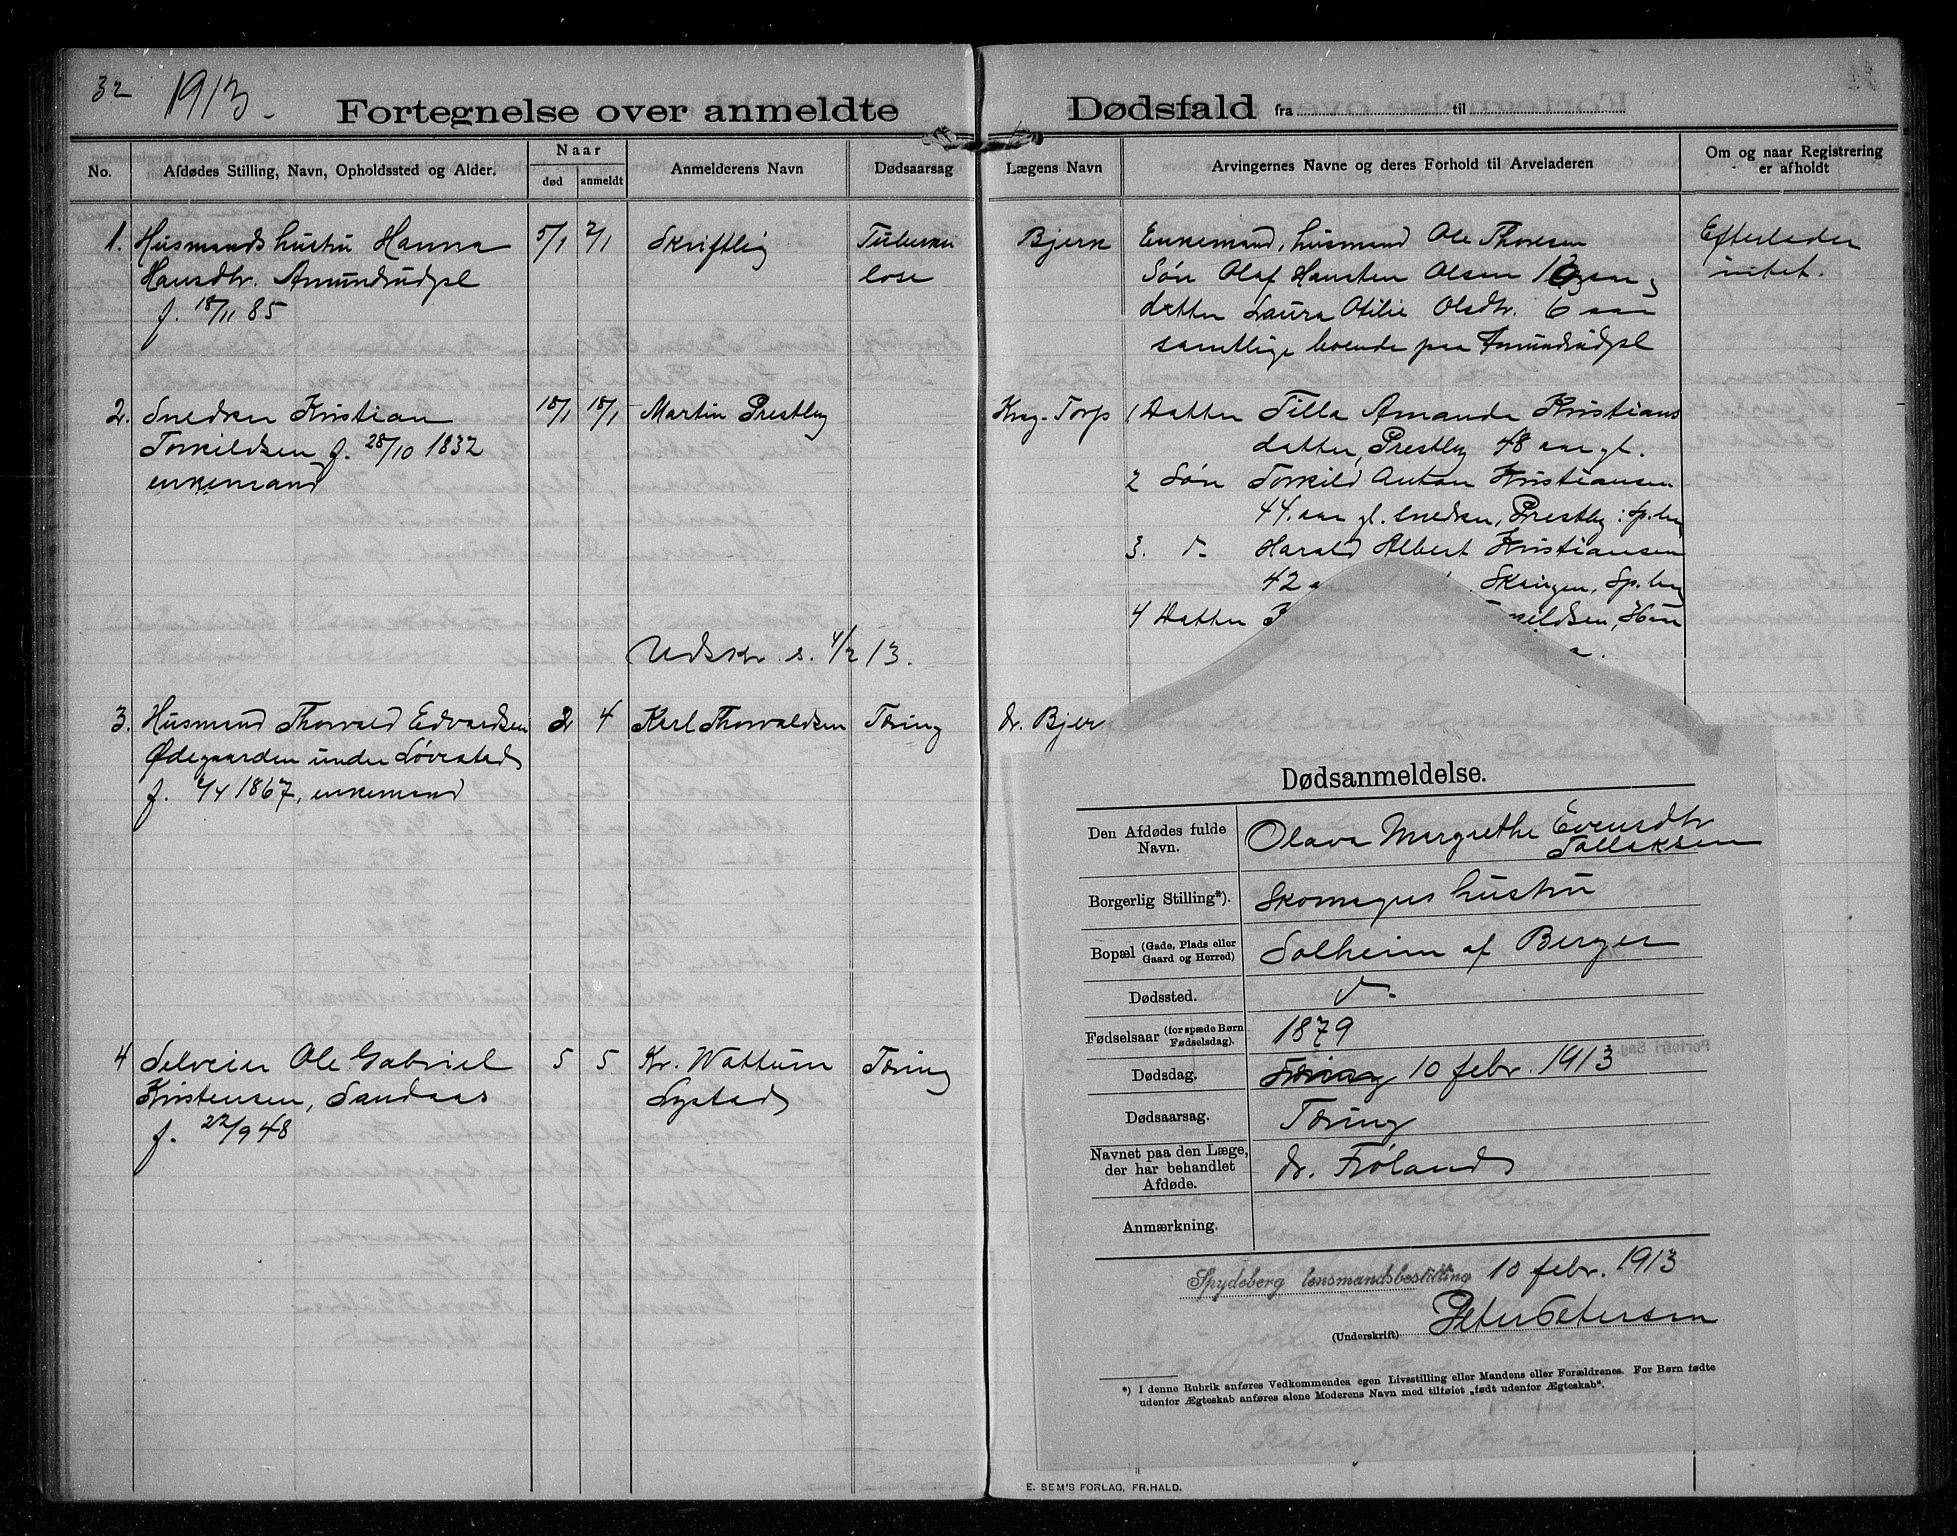 32 1913.
Fortegnelse over anmeldte Dødsfald fra til
No.
Afdødes Stilling, Navn, Opholdssted og Alder.
Naar
død anmeldt
Anmelderens Navn
Dødsaarsag
Lægens Navn
Arvingernes Navne og deres Forhold til Arveladeren
Om og naar Registrering
er afholdt
1. Husmands hustru Hanna
Hansdtr. Amundrudpl
f. 18/11 85
5/1 7/1
Skriftlig
Tuberku
lose
Bjerk
Enkemand, husmand Ole Thoresen
Søn Olaf Hansten Olsen aar og
datter Laura Otilie Olsdtr. 6 aar
samtlige boende paa Amundrudpl
Efterlader
intet.
2. Snedker Kristian
Torkildsen f. 28/10 1832
enkemand
18/1 18/1
Martin Prestby
Krag-Torp
1 Datter Tilla Amanda Kristians
datter, Prestby 48 aar gl.
2 Søn Torkild Anton Kristiansen
44. aar gl. snedker, Prestby i Sp.berg
3. d- Harald Albert Kristiansen
42 Skaugen, Sp.berg
4 Datter
Udskr. s. 4/2 13.
3. Husmand Thorvald Edvardsen
Ødegaarden under Løvestad
f. 1867, enkemand
2 4
Karl Thorvaldsen
Tæring
dr. Bjer
4 Selveier Ole Gabriel
Kristensen, Sandaas
f. 22/9 48
5 5
Kr. Wattum
Lystad
Tæring
Dødsanmeldelse.
Den Afdødes fulde
Navn.
Olava Margrethe Evensdtr
Tollaksen
Borgerlig Stilling*).
Skomagers hustru
Bopæl (Gade, Plads eller
Gaard og Herred)
Solheim af Berger
Dødssted.
d-
Fødselsaar (for spæde Børn
Fødselsdag).
1879
Dødsdag.
Tæring 10 febr. 1913
Dødsaarsag.
Tæring
Navnet paa den Læge,
der har behandlet
Afdøde.
dr. Frøland
Anmærkning.
Spydeberg lensmandsbestilling 10 febr. 1913
(Underskrift) Peter Petersen
*) I denne Rubrik anføres Vedkommendes egen Livsstilling eller Mandens eller Forældrenes. For Børn fødte
udenfor Ægteskab anføres alene Moderens Navn med tilføiet „født udenfor Ægteskab“.
E. SEM'S FORLAG, FR.HALD.